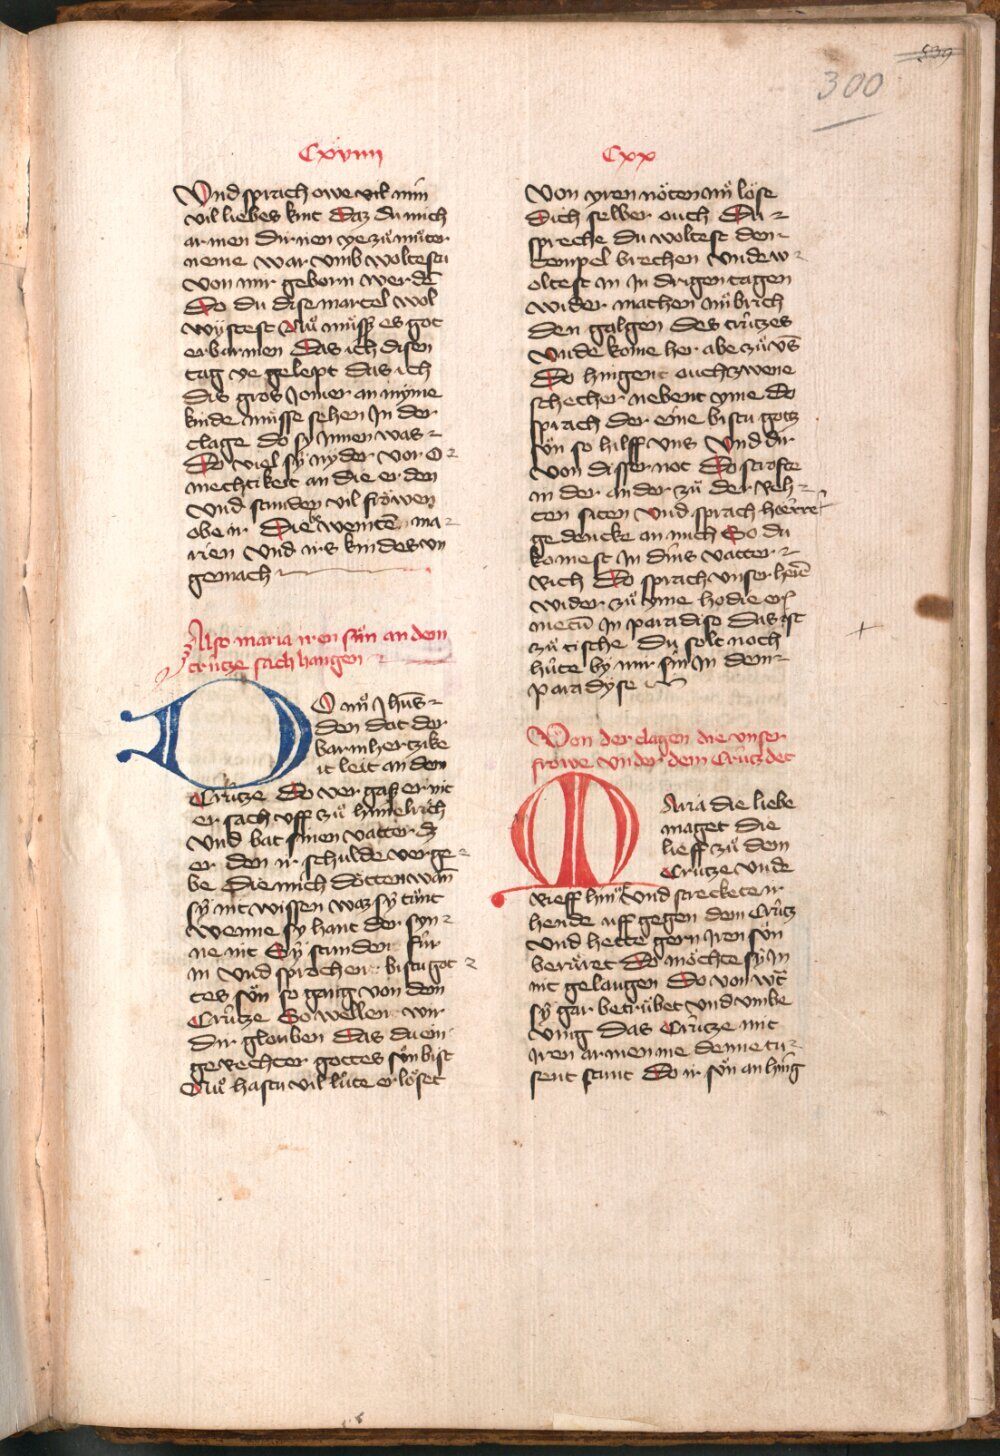 539
300
Cxviiii
Vnd sprach owe vil min
vil liebes kint Daz du mich
armen dirnen ye zuͦ muͦter
neme war vmb woltestu
von mir geborn werdē
Do du dise martel wol
wÿstest Nuͦ muͤsß es got
erbarmen Das ich disen
tag ye gelept das ich
dis gros Jomer an mÿme
kinde muͤsse sehen In der
clage do sy Jnnen was
Do viel sÿ nyder vor o
mechtikeit an die erden
Vnd stunden vil froͤwen
obe ir Die weintē ma
rien Vnd irs kindes vn
gemach
Also maria iren suͤn an dem
crútze sach hangen
DO nuͦ Jhūs
den dot der
barmhertzike
it leit an dem
Crútze Do vergaß er nit
er sach vff zuͦ himelrich
Vnd bat sinen vatter dz
er den ir schulde verge
be Die mich doͤtten wān
sÿ nit wissen waz sÿ tuͤnt
wenne sy hant der syn
ne nit Sÿ stunden fúr
in Vnd sprochen bistu got
tes suͦn so gang von dem
Crútze So wellen wir
dir glouben Das du ein
gerechter gottes suͦn bist
Nuͦ hastu vil lúte erloͤset
Cxx
Von yren noͤten nuͦ loͤse
Dich selber ouch Du
spreche du woltest den
tempel brechen Vnde w
oltest in in drigen tagen
wider machen nuͦ brich
den galgen des crútzes
Vnde kome her abe zuͦ vns̄
Do hingent ouch zwene
schecher nebent yme do
sprach der eine bistu gotz
suͦn so hilff vns Vnd dir
von disser not Do stroffte
in der ander zuͦ der reh
ten siten Vnd sprach hoerre
gedencke an mich So du
komest In dins vatter
rich Do sprach vnser herē
wider zuͦ yme hodie eris
mecū In paradiso Das ist
zuͦ tische Du solt noch
húte by mir sin In dem
paradyse
Von der clagen die vnser
frowe vnder dem Crútz det
MAria die liebe
maget die
lieff zuͦ dem
Crútze Vnde
rieff hin Vnd streckete ir
hende uff gegen dem Crútz
Vnd hette gern Iren suͦn
beruͤret Do moͤchte sÿ In
nit gelangen Do von wt̄
sÿ gar betruͤbet vnd vmbe
ving das Crútze mit
Iren armen me denne tu
sent stunt Do ir suͦn an hing